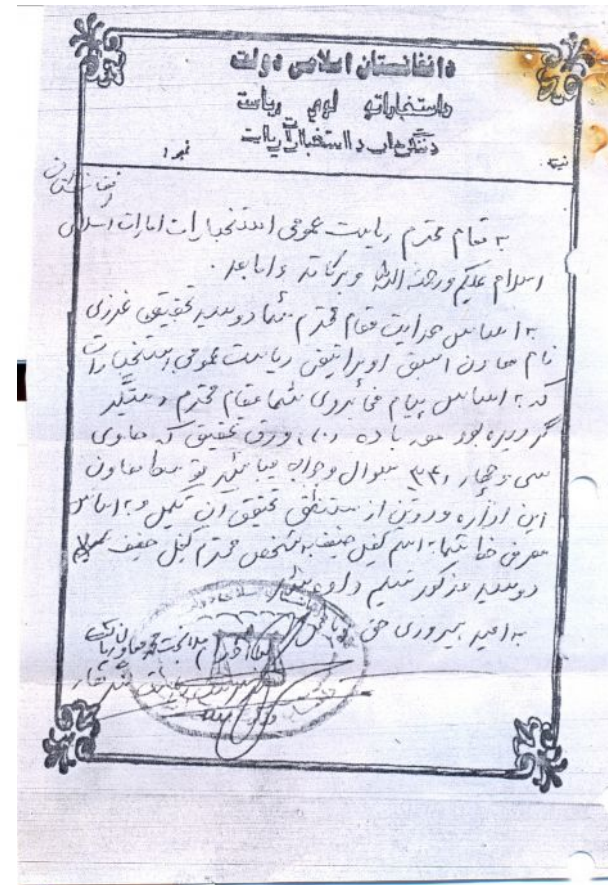 دافغانستان اسلامی دولت
داستخباراتو لوی ریاست
د ننگرهار د استخباراتو ریاست
نمبر
نیټه
افغانستان
به مقام محترم ریاست عمومی استخبارات امارات اسلامی
اسلام علیکم ورحمة الله وبرکاته واما بعد.
به اساس هدایت مقام محترم شما دوسیه تحقیقی غرزی
نام معاون اسبق اوپراتیفی ریاست عمومی استخبارات
که به اساس پیام مخابروی شما مقام محترم دستگیر
گردیده بود ورق تحقیق که حاوی
سی و چهار ۳۴ سوال وجواب میباشد توسط معاون
این اداره تحقیق آن تکمیل و به اساس
معرفی خط شما به اسم کفیل حنیف به شخص محترم کفیل حنیف
دوسیه مذکور تسلیم داده شد
به امید پیروزی حق